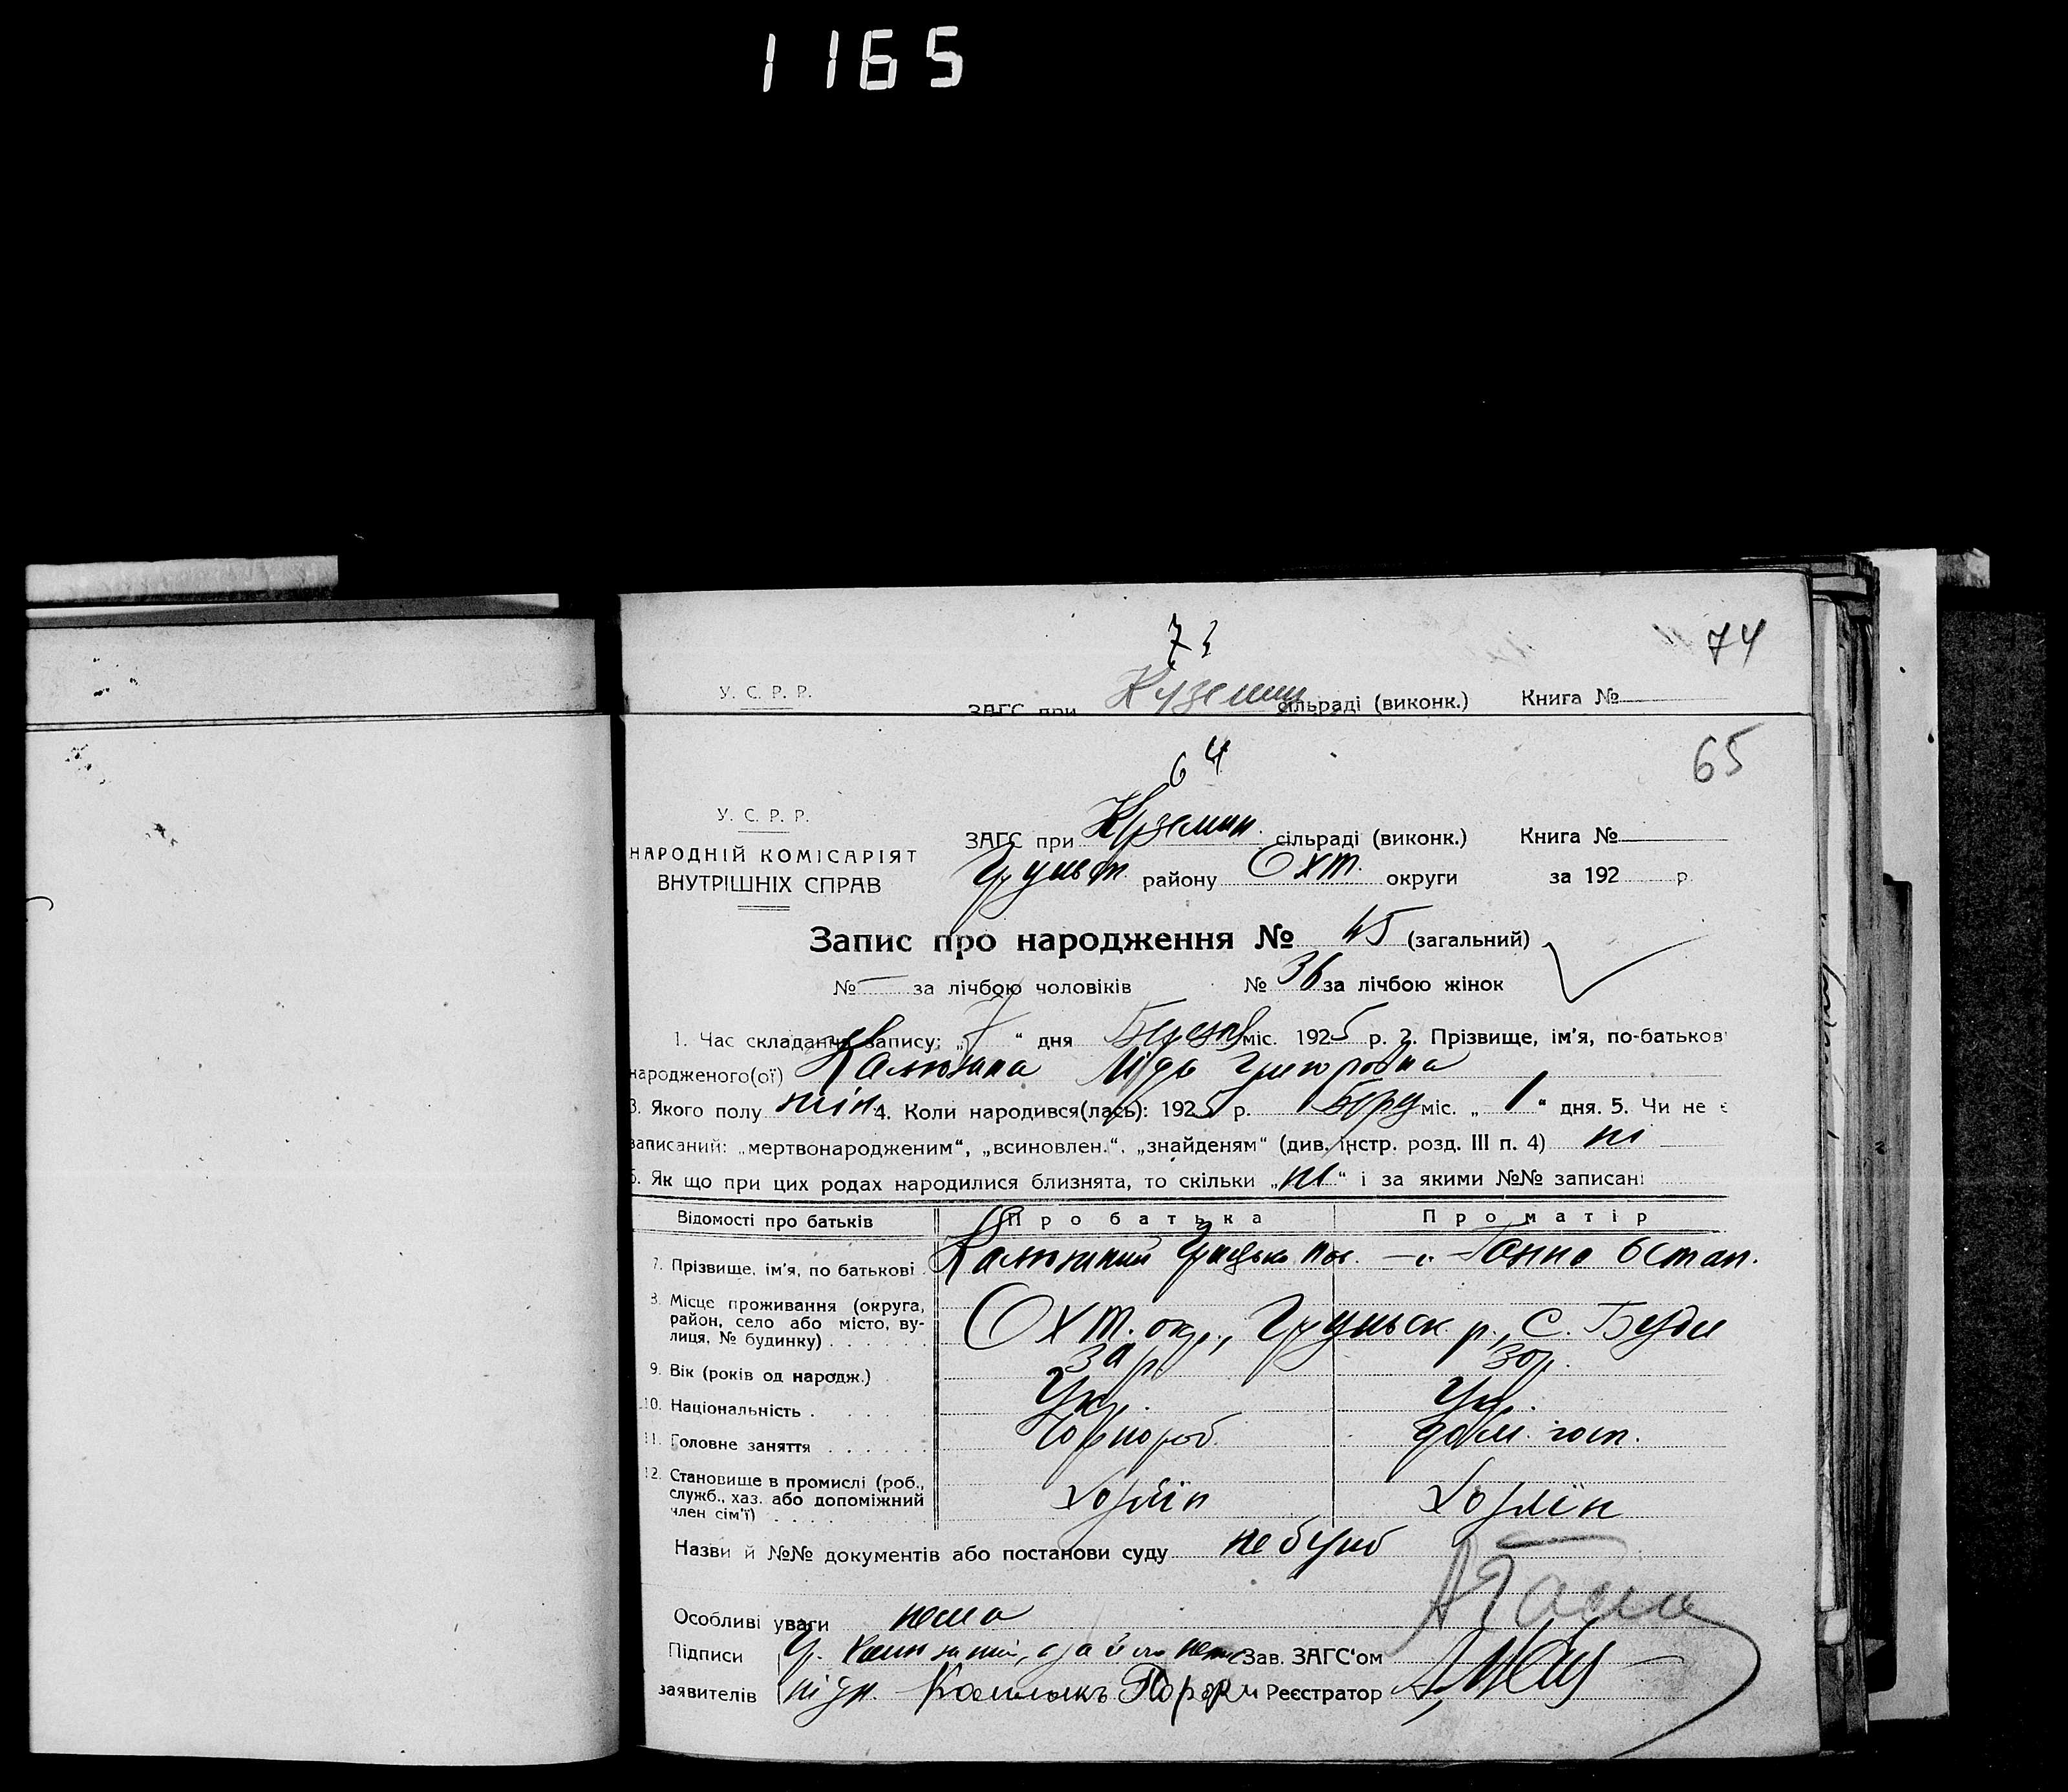 1165
74
У. С. Р. Р.
ЗАГС при Куземин сільраді (виконк.) Книга №
64
65
У. С. Р. Р.
НАРОДНІЙ КОМІСАРІЯТ
ВНУТРІШНІХ СПРАВ
ЗАГС при Куземин. сільраді (виконк.) Книга №
Груньск. району Охт. округи за 192 р.
Запис про народження № 45 (загальний)
№ — за лічбою чоловіків № 36 за лічбою жінок
1. Час складання запису: „7“ дня Березов міс. 1925 р. 2. Прізвище, ім'я, по-батькові
народженого(ої) Калюжна Лідя Григоровна
3. Якого полу жін. 4. Коли народився(лась): 1925 р. міс. „1“ дня. 5. Чи не є
записаний: „мертвонародженим“, „всиновлен.“, „знайденям“ (див. інстр. розд. III п. 4) ні
6. Як що при цих родах народилися близнята, то скільки „ні“ і за якими №№ записані
Відомості про батьків Про батька Про матір
7. Прізвище, ім'я, по батькові Калюжний Грицько — „ Ганна Остап.
8. Місце проживання (округа,
район, село або місто, ву-
лиця, № будинку) Охт. окр., Груньск р., с. Буди
9. Вік (років од народж.) р. 30 р.
10. Національність Укр. Укр.
11. Головне заняття Чорнороб дом. госп.
12. Становище в промислі (роб.,
служб., хаз. або допоміжний
член сім'ї)
Назви й №№ документів або постанови суду не було
Особливі уваги нема
Підписи Гр. Зав. ЗАГС'ом
заявителів Реєстратор